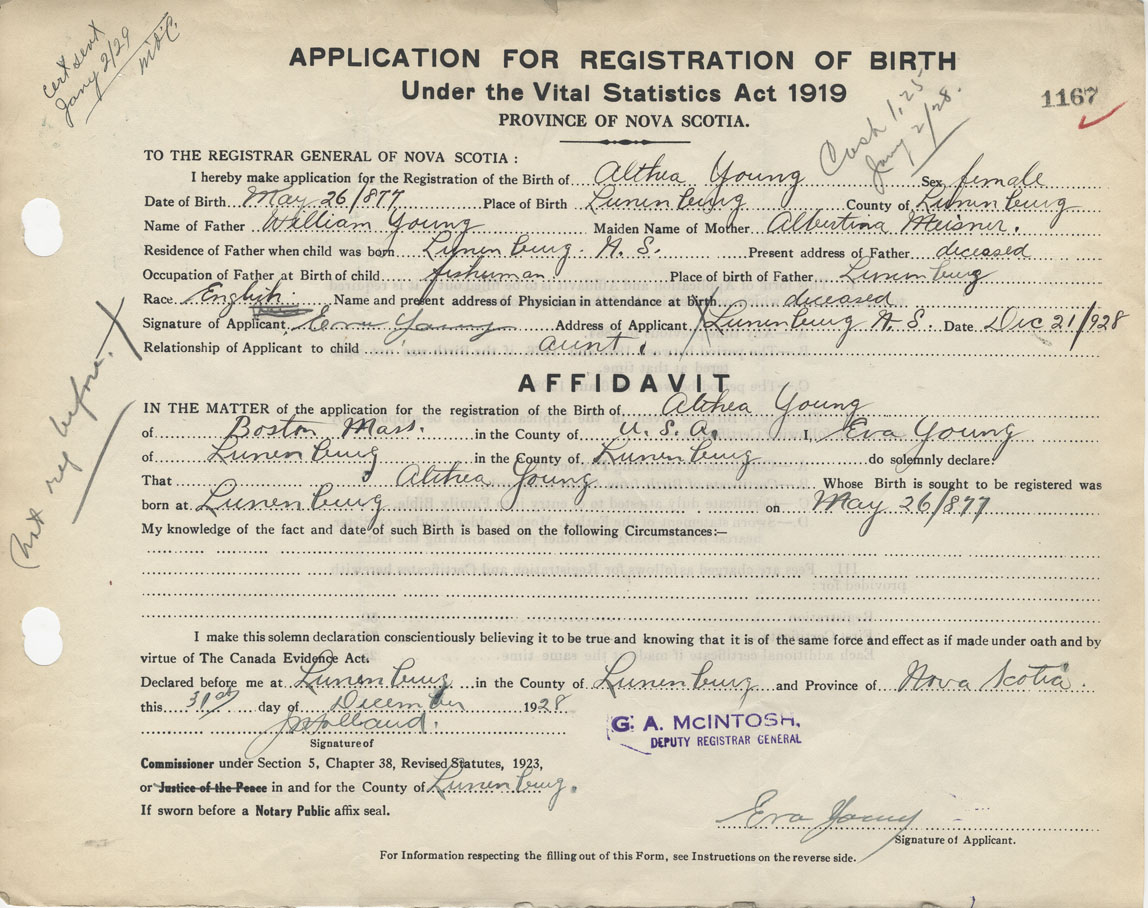 cert sent
Jany 2/29
APPLICATION FOR REGISTRATION OF BIRTH
Under the Vital Statistics Act 1919
PROVINCE OF NOVA SCOTIA.
1167
Cash 1.25
Jany 2/28.
TO THE REGISTRAR GENERAL OF NOVA SCOTIA :
I hereby make application for the Registration of the Birth of Althea Young Sex female
Date of Birth May 26/877 Place of Birth Lunenburg County of Lunenburg
Name of Father William Young Maiden Name of Mother Albertina Meisner.
Residence of Father when child was born Lunenburg. N. S. Present address of Father deceased
Occupation of Father at Birth of child fisherman Place of birth of Father Lunenburg
Race English Name and present address of Physician in attendance at birth deceased
Signature of Applicant. Eva Young Address of Applicant Lunenburg N. S. Date Dec 21/928
Relationship of Applicant to child aunt.
Not reg before. X
AFFIDAVIT
IN THE MATTER of the application for the registration of the Birth of Althea Young
of Boston Mass. in the County of U. S. A. I, Eva Young
of Lunenburg in the County of Lunenburg do solemnly declare:
That Althea Young Whose Birth is sought to be registered was
born at Lunenburg on May 26/877
My knowledge of the fact and date of such Birth is based on the following Circumstances:—
I make this solemn declaration conscientiously believing it to be true and knowing that it is of the same force and effect as if made under oath and by
virtue of The Canada Evidence Act.
Declared before me at Lunenburg in the County of Lunenburg and Province of Nova Scotia.
this 31st day of December 1928
Holland.
Signature of
G. A. McINTOSH,
DEPUTY REGISTRAR GENERAL
Commissioner under Section 5, Chapter 38, Revised Statutes, 1923,
or Justice of the Peace in and for the County of Lunenburg.
If sworn before a Notary Public affix seal.
Eva Young
Signature of Applicant.
For Information respecting the filling out of this Form, see Instructions on the reverse side.